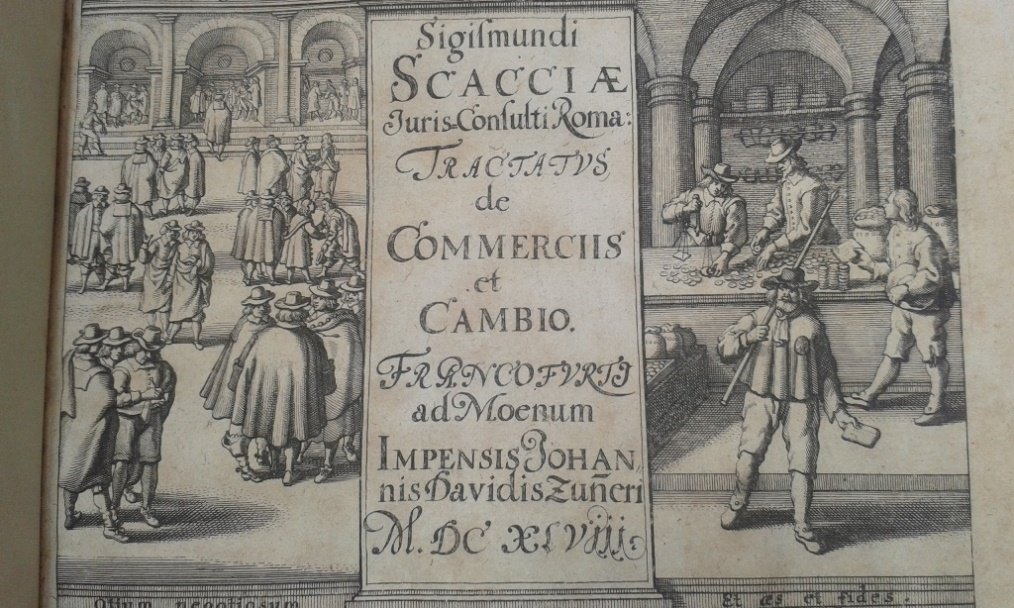 Sigiſmundi
SCACCIÆ
Juris-Conſulti Roma:
TRACTATVS
de
COMMERCIIS
et
CAMBIO.
FRANCOFVRTI
ad Moenum
IMPENSIS JOHAN,
nis Davidis Zuñeri
M. DC XLVIII.
Otium negotiosum
Et æs et fides.